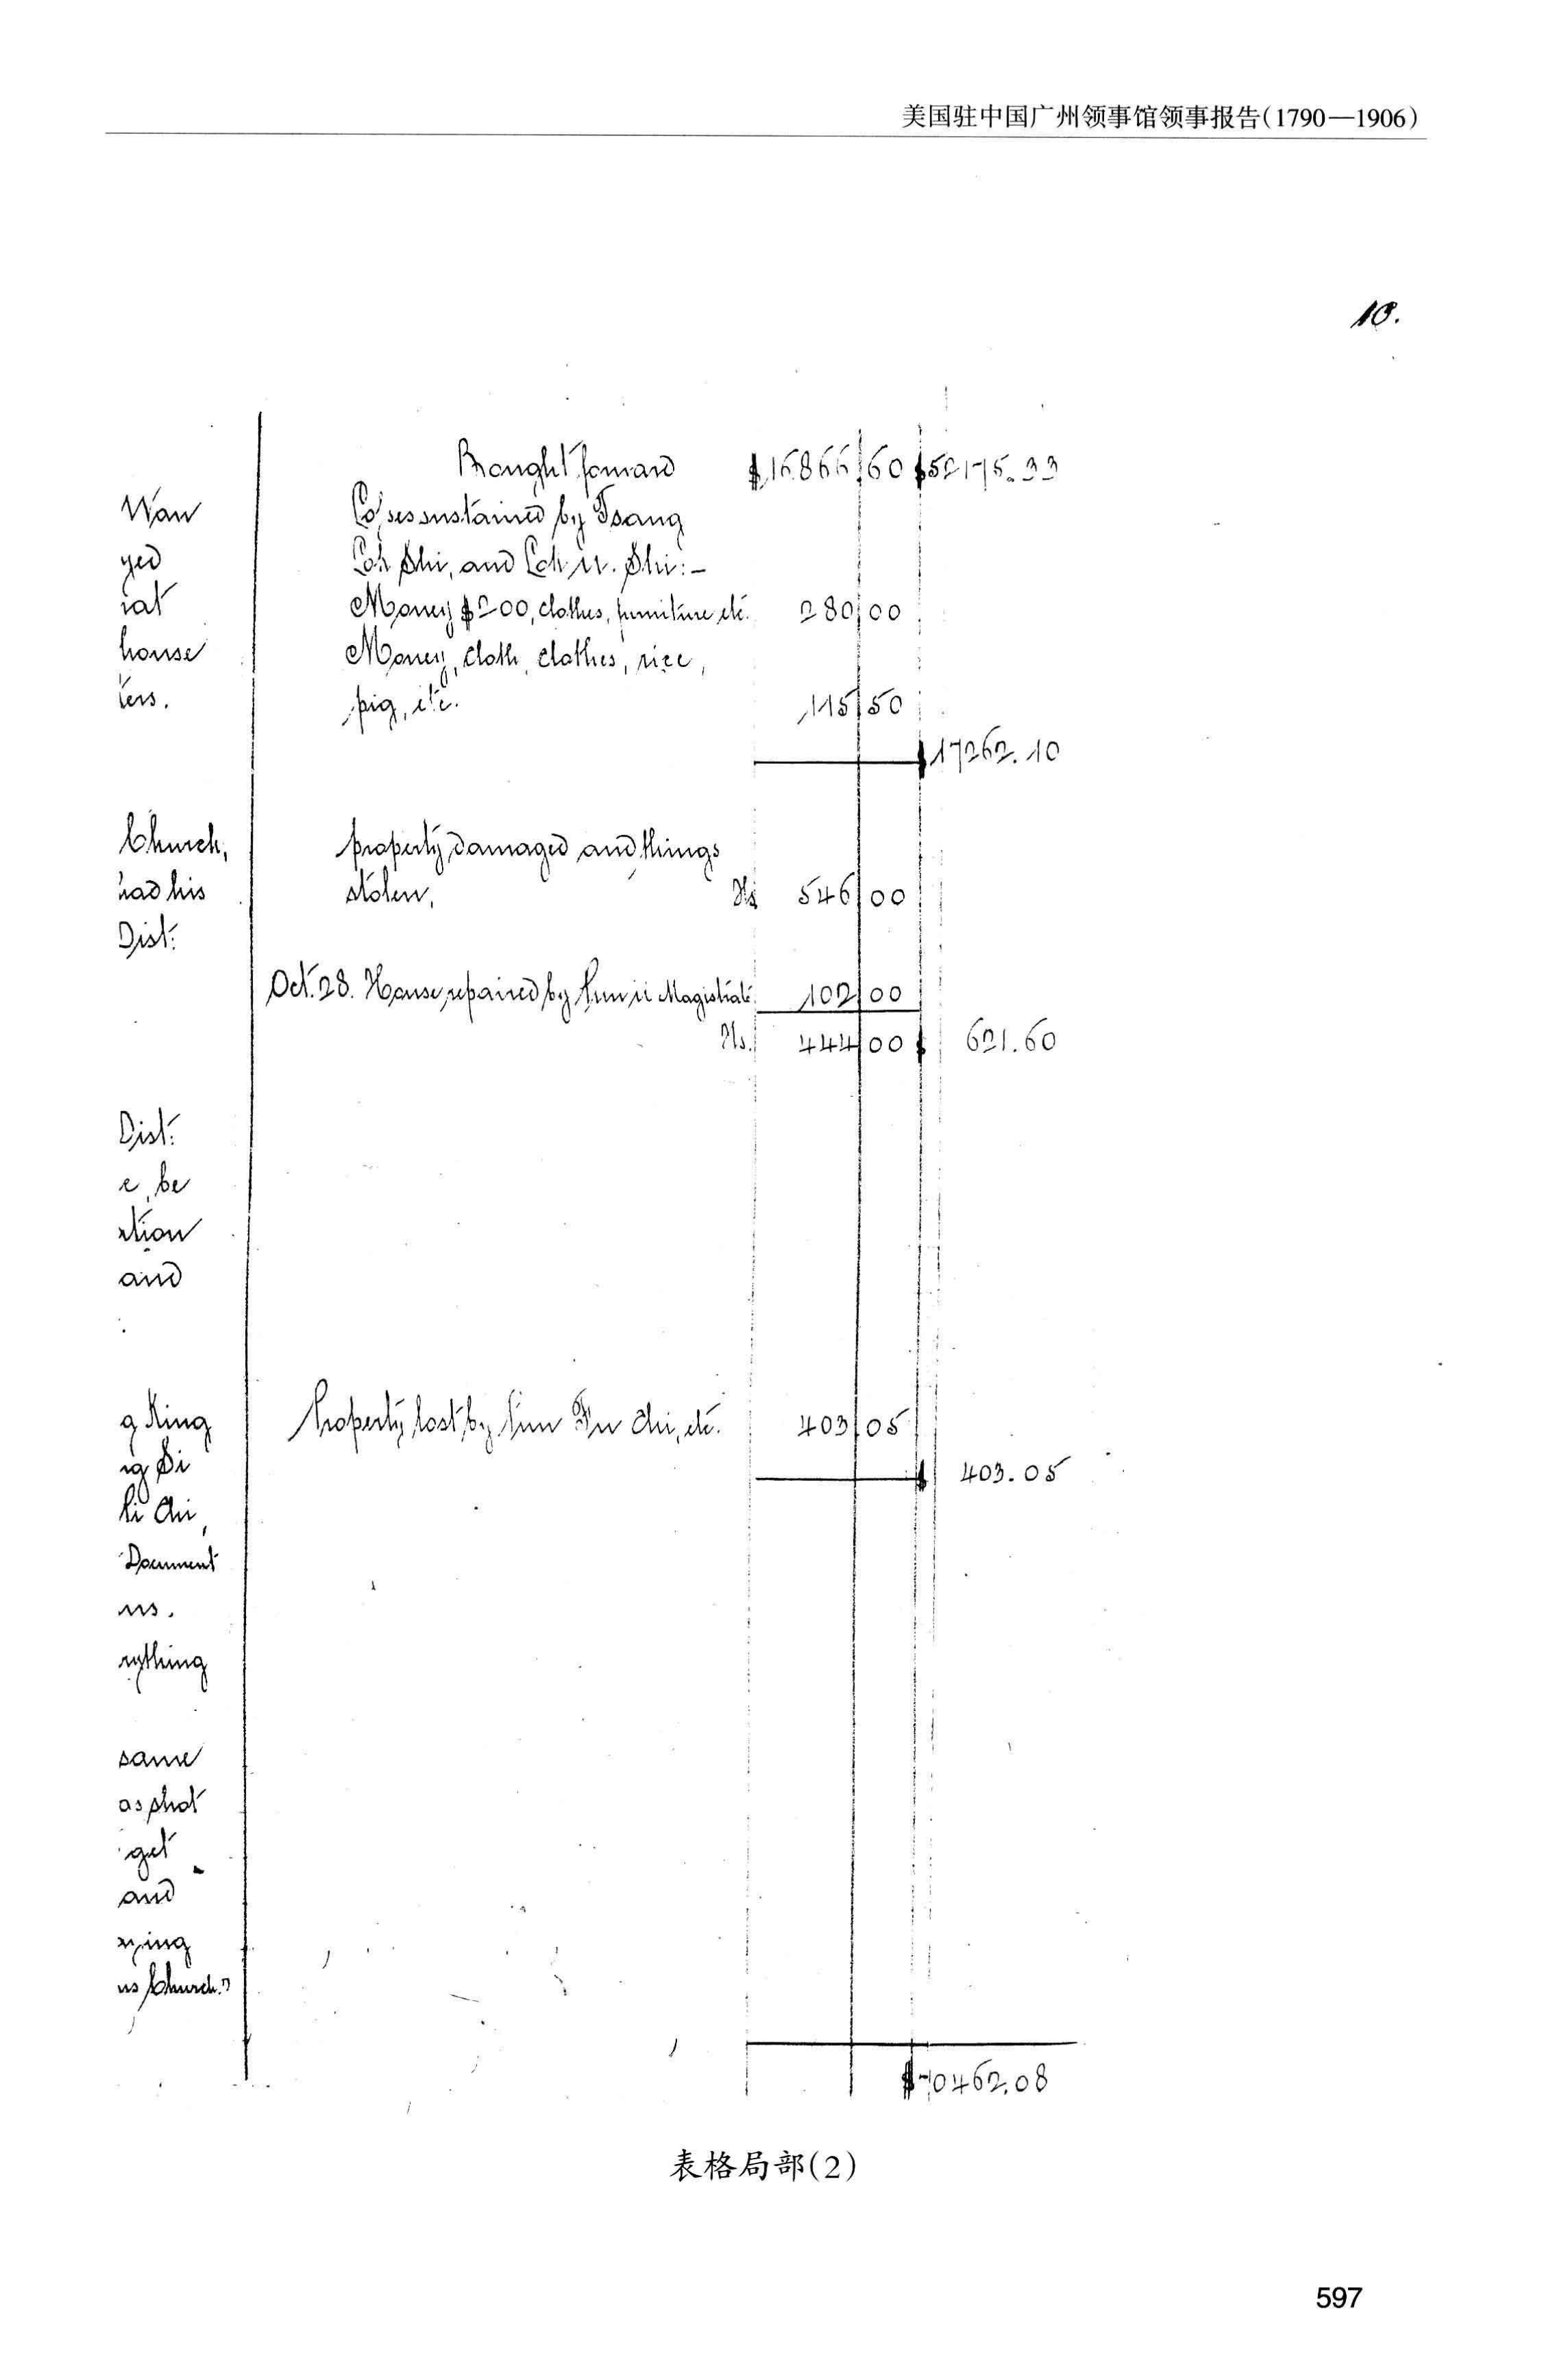 美国驻中国广州领事馆领事报告(1790—1906)
10.
Brought forward $16866 60 $52175.33
Wan Losses sustained by Tsang
yed Loh Shi, and Loh Shi:-
rat Money $200, clothes, furniture etc. 280 00
house Money, cloth, clothes, rice,
ters. pig, etc. 115 50
$17262.10
Church, property damaged and things
had his stolen, Tls 546 00
Dist:
Oct. 28. House repaired by Sun ii Magistrate. 102 00
Tls. 444 00 $ 621.60
Dist:
e, be
ation
and
g King Property lost by Sun Fu Chi, etc. 403 05
ng Si $ 403.05
li Chi,
Document
ns.
rything
same
as shot
get
and
ying
us Church."
$70462.08
表格局部(2)
597